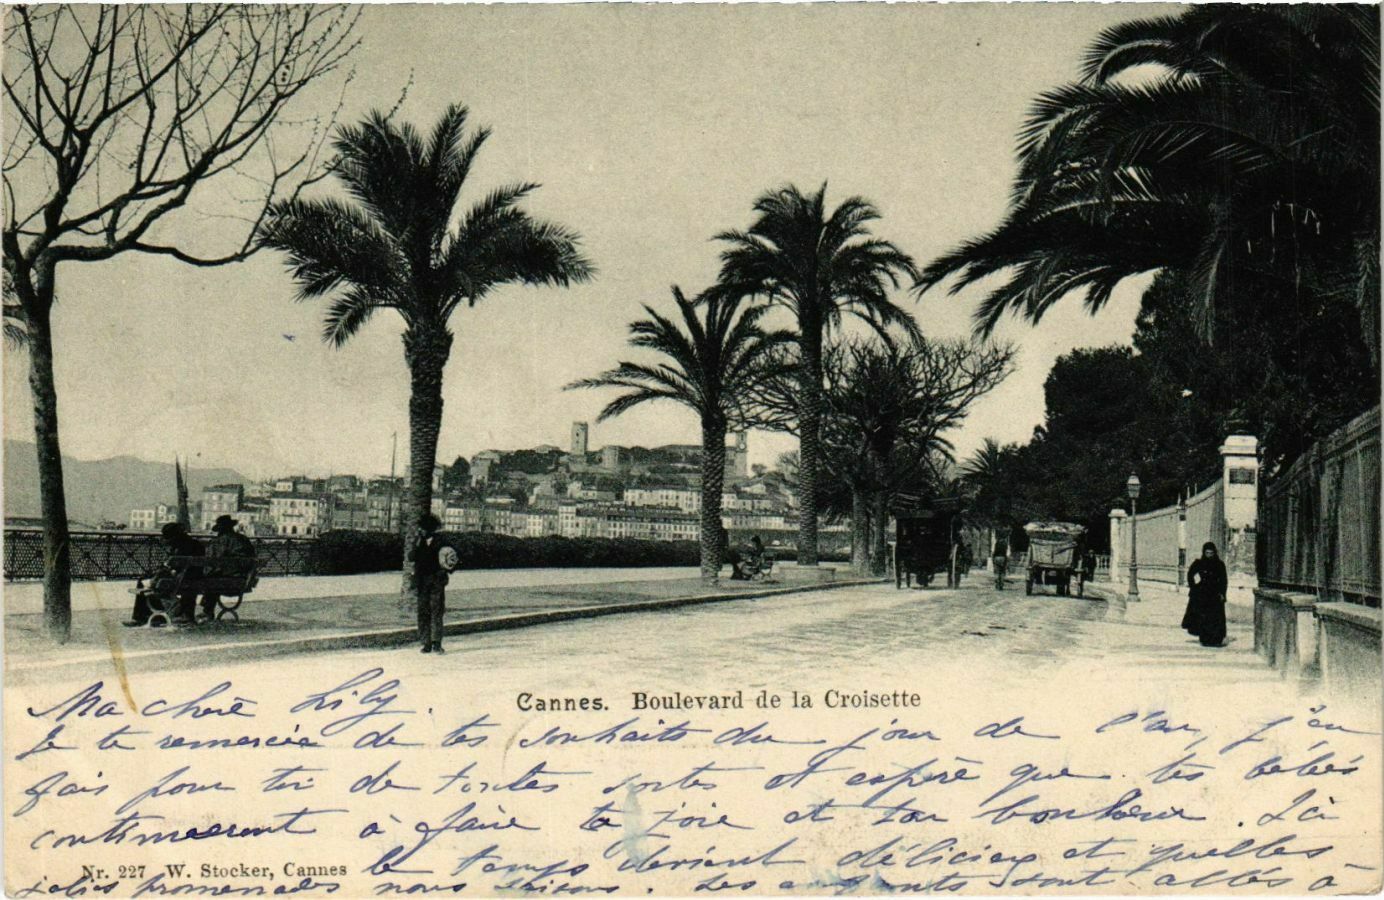 Cannes. Boulevard de la Croisette
Ma chère Lily.
Je te remercie de tes souhaits du jour de l'an, j'en
fais pour toi de toutes sortes et espère que tes bébés
continueront à faire ta joie et ton bonheur. Ici
le temps devient délicieux et quelles
Nr. 227 W. Stocker, Cannes
jolies promenades nous faisons. Les enfants sont allés à